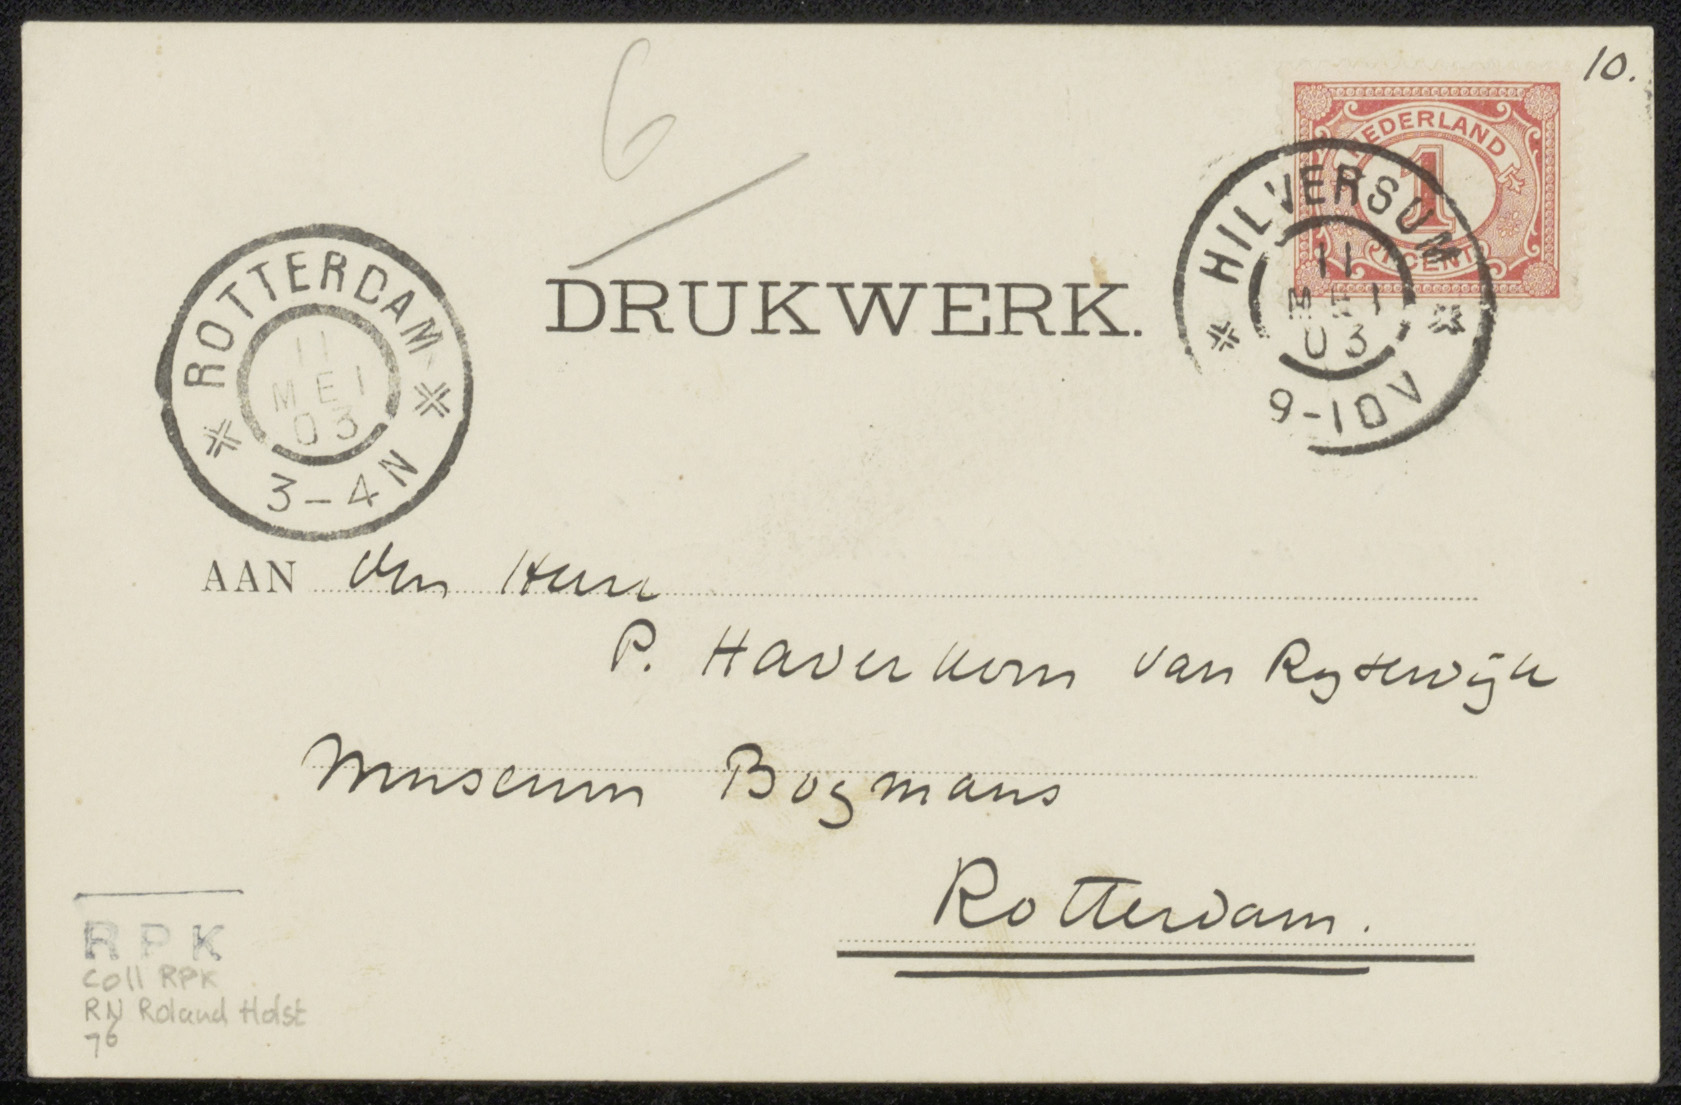 10.
6
NEDERLAND
1
1 CENT
HILVERSUM
11
MEI
03
9-10V
ROTTERDAM
11
MEI
03
3-4N
DRUKWERK.
AAN den Heer
P. Haverkorn van Rysewijk
Museum Boymans
Rotterdam.
RPK
Coll RPK
RN Roland Holst
76